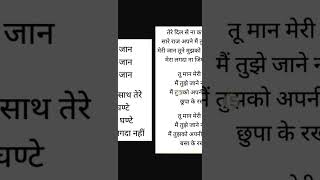 जान
जान
जान
साथ तेरे
घण्टे
घण्टे
लगदा नहीं
तेरे दिल से ना क
सारे राज अपने मैं तु
मेरी जान तूने मुझको
मेरा लगदा ना जि
तू मान मेरी
मैं तुझे जाने न
मैं तुझको अपनी
छुपा के रख
तू मान मेरी
मैं तुझे जाने न
मैं तुझको अपनी
बसा के रख
तू मान मेरी
मैं तुझे जाने न
मैं तुझको अपनी
छुपा के र
तू मान मेरी
मैं तुझे जाने न
मैं तुझको अपनी
बसा के रख